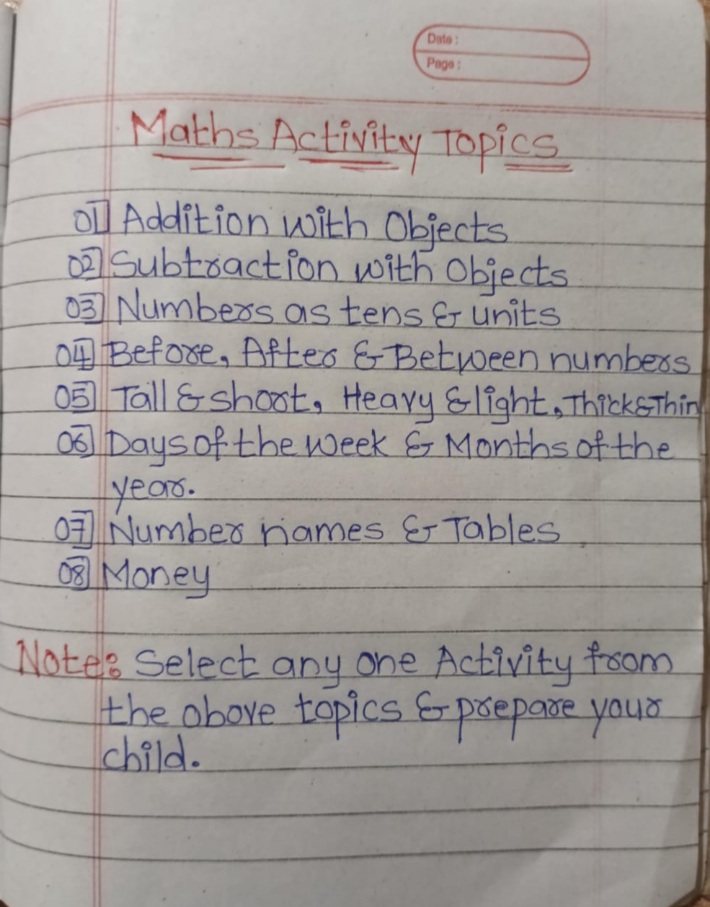 Date :
Page :
Maths Activity Topics
01] Addition with Objects
02] Subtraction with Objects
03] Numbers as tens & units
04] Before, After & Between numbers
05] Tall & short, Heavy & light, Thick & Thin
06] Days of the Week & Months of the
year.
07] Number names & Tables
08] Money
Note: Select any one Activity from
the above topics & prepare your
child.